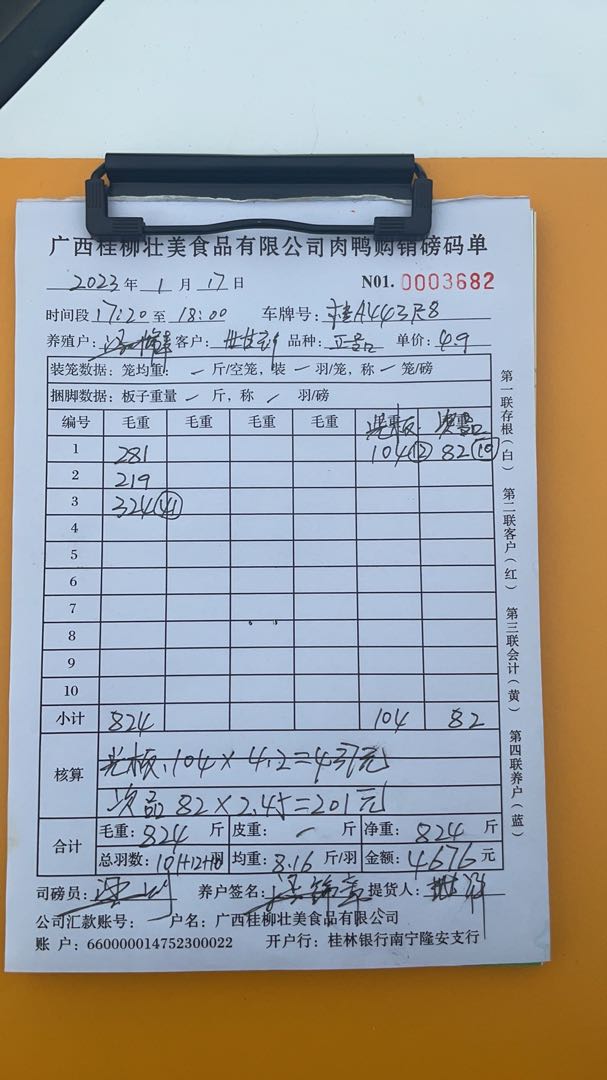 广西桂柳壮美食品有限公司肉鸭购销磅码单
2023年 1月 17日 N01. 0003682
时间段 17:20 至 18:00 车牌号: 桂A443R8
养殖户: 客户: 品种: 正品 单价: 4.9
装笼数据: 笼均重: - 斤/空笼, 装 - 羽/笼, 称 - 笼/磅
捆脚数据: 板子重量 - 斤, 称 - 羽/磅
编号 毛重 毛重 毛重 毛重 光板 次品
1 281 104 (12) 82 (10)
2 219
3 324 (41)
4
5
6
7
8
9
10
小计 824 104 82
核算 光板 104×4.2=437元
次品 82×2.45=201元
合计 毛重: 824 斤 皮重: - 斤 净重: 824 斤
总羽数: 101+12+10 羽 均重: 8.16 斤/羽 金额: 4676 元
司磅员: 养户签名: 提货人:
公司汇款账号: 户名: 广西桂柳壮美食品有限公司
账 户: 660000014752300022 开户行: 桂林银行南宁隆安支行
第一联存根(白) 第二联客户(红) 第三联会计(黄) 第四联养户(蓝)